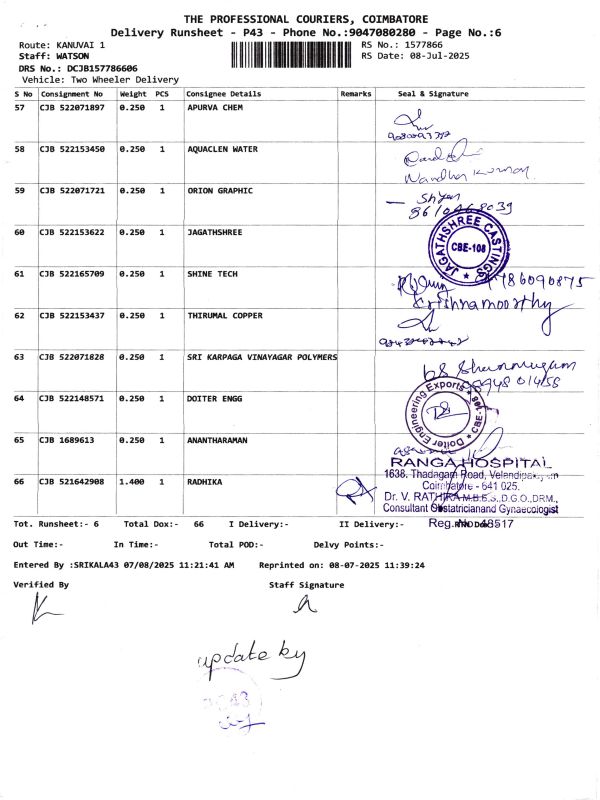 THE PROFESSIONAL COURIERS, COIMBATORE
Delivery Runsheet - P43 - Phone No.:9047080280 - Page No.:6
Route: KANUVAI 1
RS No.: 1577866
Staff: WATSON
RS Date: 08-Jul-2025
DRS No.: DCJB157786606
Vehicle: Two Wheeler Delivery
S No Consignment No Weight PCS Consignee Details Remarks Seal & Signature
57 CJB 522071897 0.250 1 APURVA CHEM
58 CJB 522153450 0.250 1 AQUACLEN WATER
Nandha Kumar
59 CJB 522071721 0.250 1 ORION GRAPHIC
Shyam
60 CJB 522153622 0.250 1 JAGATHSHREE
JAGATHSHREE CASTINGS
CBE-108
61 CJB 522165709 0.250 1 SHINE TECH
9786090875
Krishnamoorthy
62 CJB 522153437 0.250 1 THIRUMAL COPPER
63 CJB 522071828 0.250 1 SRI KARPAGA VINAYAGAR POLYMERS
Shanmugam
64 CJB 522148571 0.250 1 DOITER ENGG
Doiter Engineering Exports
65 CJB 1689613 0.250 1 ANANTHARAMAN
RANGA HOSPITAL
1638, Thadagam Road, Velandipalayam
Coimbatore - 641 025.
66 CJB 521642908 1.400 1 RADHIKA
Dr. V. RATHIKA M.B.B.S.,D.G.O.,DRM.,
Consultant Obstetrician and Gynaecologist
Reg. No. 48517
Tot. Runsheet:- 6 Total Dox:- 66 I Delivery:- II Delivery:-
Out Time:- In Time:- Total POD:- Delvy Points:-
Entered By :SRIKALA43 07/08/2025 11:21:41 AM Reprinted on: 08-07-2025 11:39:24
Verified By Staff Signature
update by